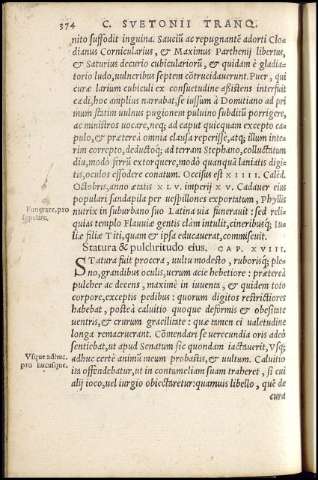 374 C. SVETONII TRANQ.
nito suffodit inguina. Sauciũ ac repugnantẽ adorti Clo
dianus Cornicularius, & Maximus Parthenij libertus,
& Saturius decurio cubiculariorũ, & quidam è gladia-
torio ludo, uulneribus septem cõtrucidauerunt. Puer, qui
curæ larium cubiculi ex consuetudine assistens interfuit
cædi, hoc amplius narrabat, se iussum à Domitiano ad pri
mum statim uulnus pugionem puluino subditũ porrigere,
ac ministros uocare, neq; ad caput quicquam excepto ca-
pulo, & præterea omnia clausa reperisse, atq; illum inte-
rim correpto, deductoq; ad terram Stephano, colluctatum
diu, modò ferrũ extorquere, modò quanquã laniatis digi-
tis, oculos effodere conatum. Occisus est XIIII. Caled.
Octobris, anno ætatis XLV. imperij XV. Cadauer eius
populari sandapila per uespillones exportatum, Phyllis
Funerare, pro
sepelire.
nutrix in suburbano suo Latina uia funerauit: sed reli-
quias templo Flauuiæ gentis clàm intulit, cineribusq; Iu-
liæ filiæ Titi, quam & ipsa educauerat, commiscuit.
Statura & pulchritudo eius. CAP. XVIII.
STatura fuit procera, uultu modesto, ruborisq; ple-
no, grandibus oculis, uerum acie hebetiore: præterea
pulcher ac decens, maximè in iuuenta, & quidem toto
corpore, exceptis pedibus: quorum digitos restrictiores
habebat, posteà caluitio quoque deformis & obesitate
uentris, & crurum gracilitate: quæ tamen ei ualetudine
longa remacruerant. Cõmendari se uerecundia oris adeò
sentiebat, ut apud Senatum sic quondam iactauerit, Vsq;
Vsque adhuc.
pro hucusque.
adhuc certè animũ meum probastis, & uultum. Caluitio
ita offendebatur, ut in contumeliam suam traheret, si cui
alij ioco, uel iurgio obiectaretur: quamuis libello, quẽ de
cura